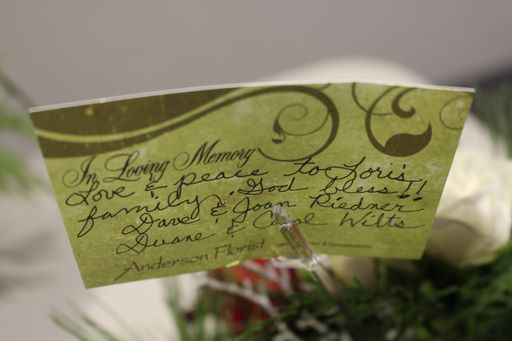 In Loving Memory
Love & peace to Lori's
family. God bless!!
Dave & Joan Riedner
Duane & Carol Wilts
Anderson Florist